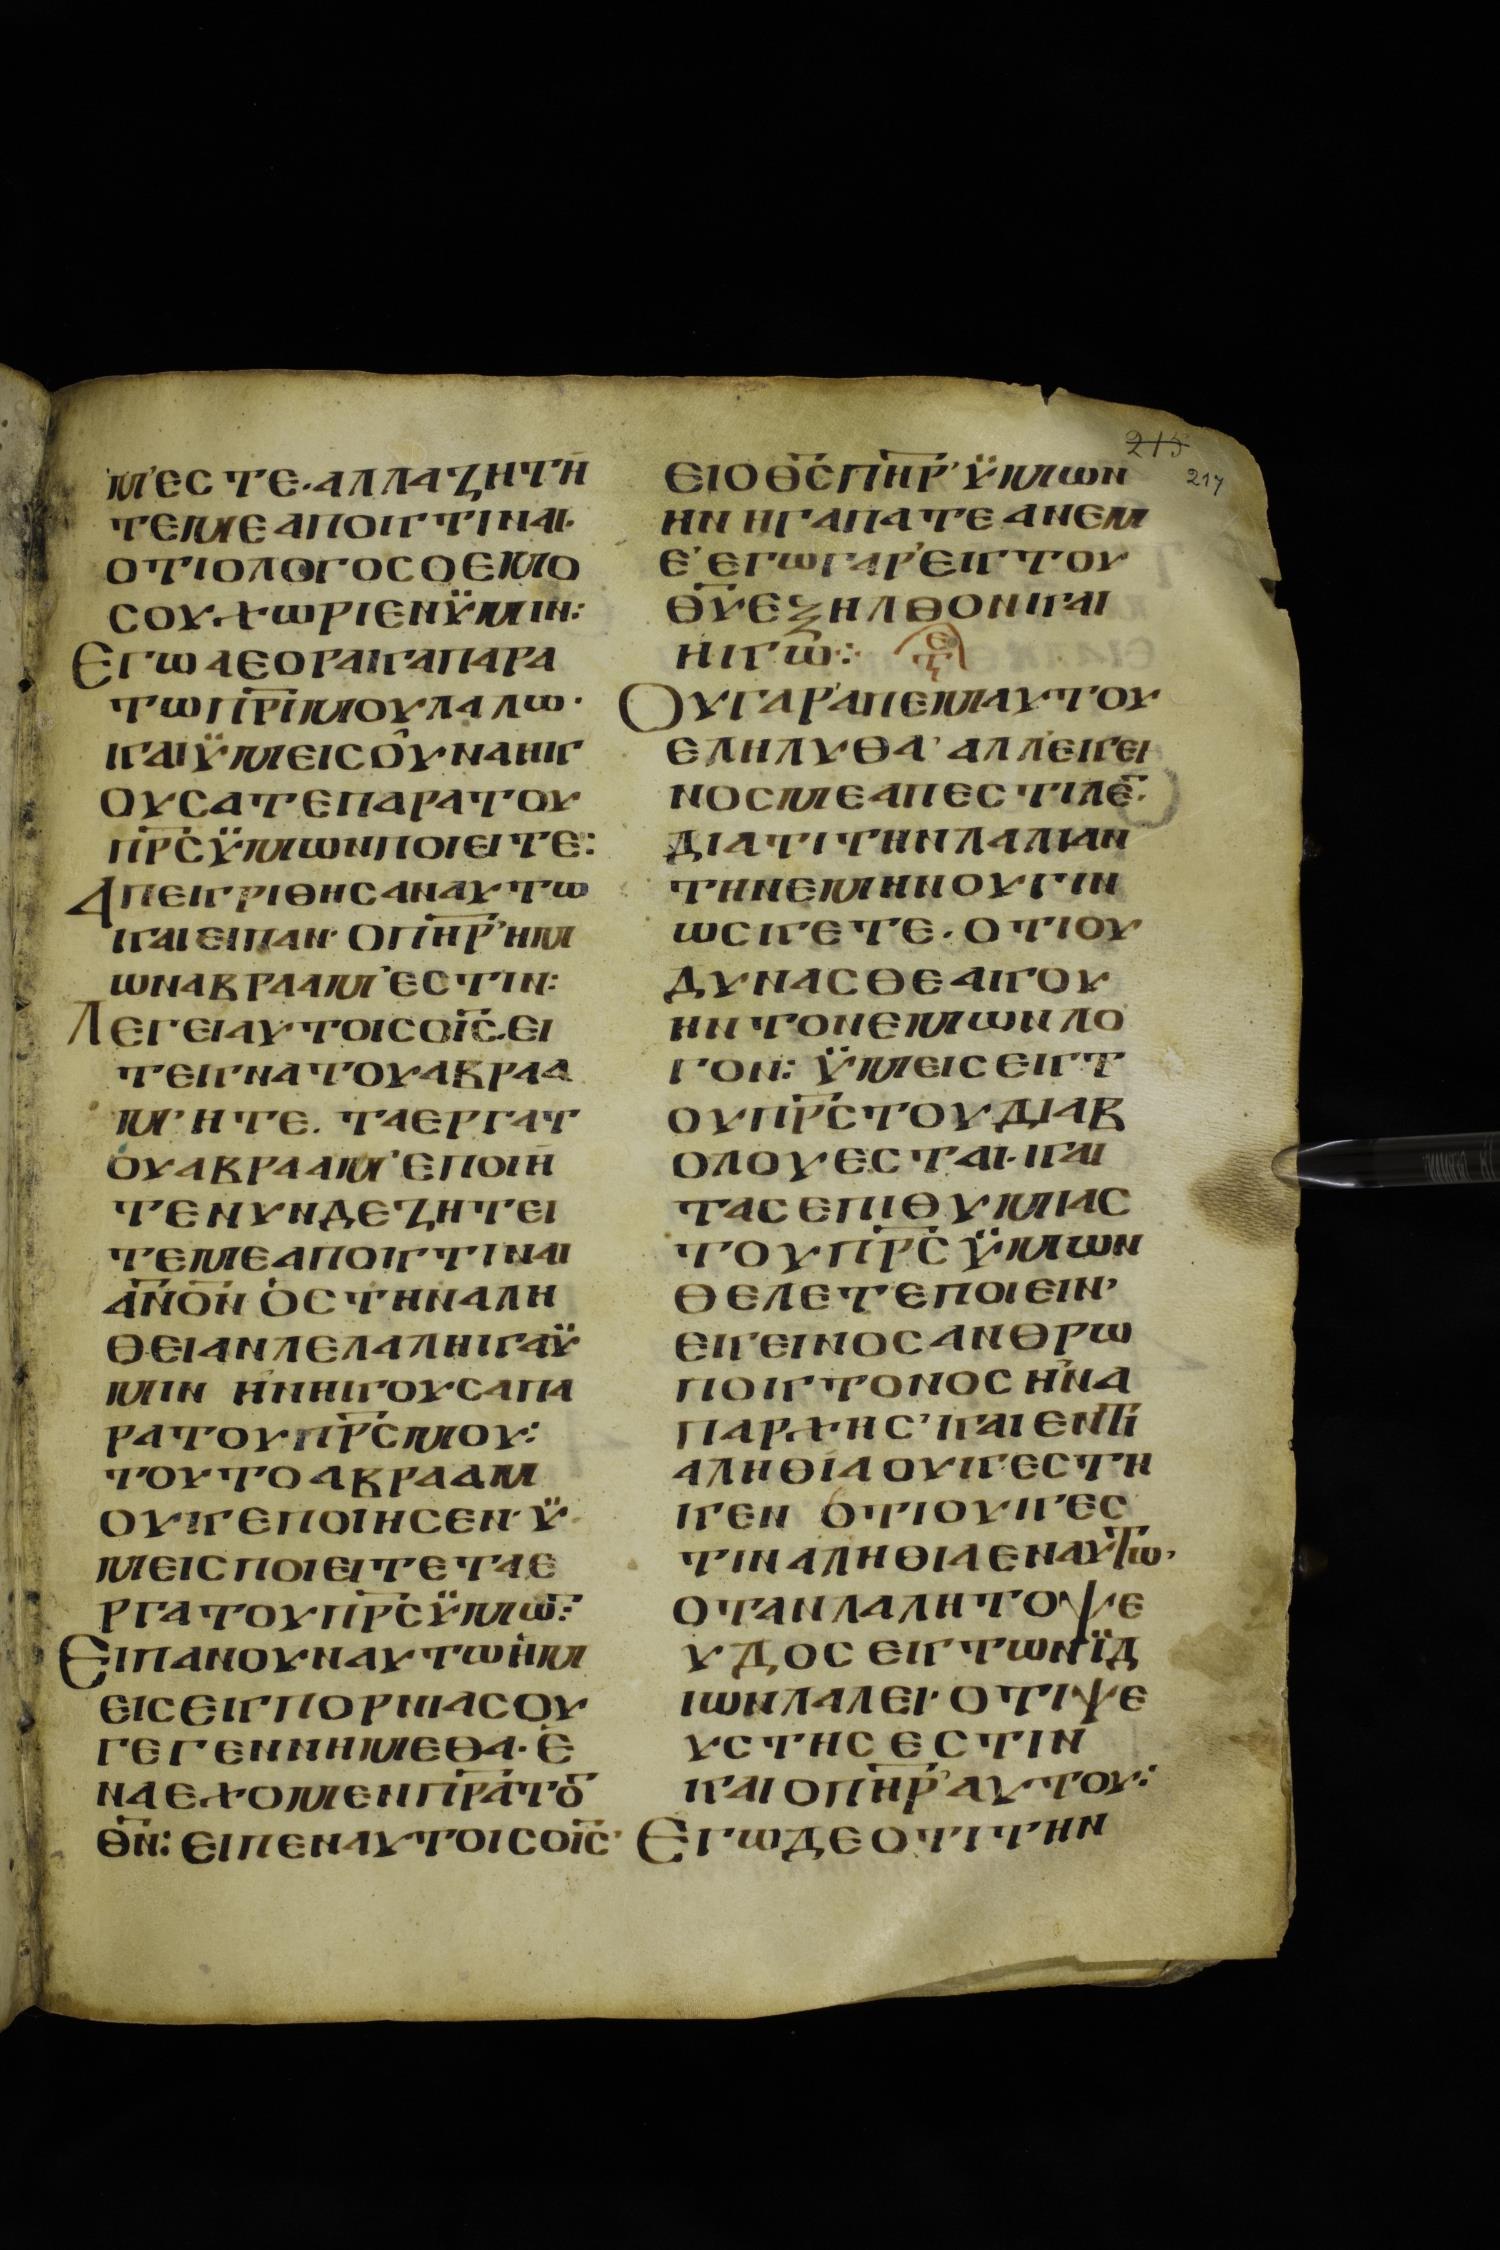 215
217
ΜΕСΤΕ·ΑΛΛΑΖΗΤΗ̄
ΤΕΜΕΑΠΟΚΤΙΝΑΙ·
ΟΤΙΟΛΟΓΟСΟΕΜΟ
СΟΥΧΩΡΙΕΝΫΜΙΝ:
ΕΓΩΔΕΟΡΑΚΑΠΑΡΑ
ΤΩΠ̅Ρ̅Ι̅ΜΟΥΛΑΛΩ·
ΚΑΙΫΜΕΙСΟΥΝΑΗΚ
ΟΥСΑΤΕΠΑΡΑΤΟΥ
Π̅Ρ̅С̅ΫΜΩΝΠΟΙΕΙΤΕ:
ΑΠΕΚΡΙΘΗСΑΝΑΥΤΩ
ΚΑΙΕΙΠΑΝ·ΟΠ̅Η̅Ρ̅ʼΗΜ
ΩΝΑΒΡΑΑΜʼΕСΤΙΝ:
ΛΕΓΕΙΑΥΤΟΙСΟΙ̅С̅.ΕΙ
ΤΕΚΝΑΤΟΥΑΒΡΑΑ
ΜʼΗΤΕ. ΤΑΕΡΓΑΤ
ΟΥΑΒΡΑΑΜʼΕΠΟΙΗ̄
ΤΕΝΥΝΔΕΖΗΤΕΙ
ΤΕΜΕΑΠΟΚΤΙΝΑΙ
Α̅Ν̅Ο̅Ν̅ΟСΤΗΝΑΛΗ
ΘΕΙΑΝΛΕΛΑΛΗΚΑΫ
ΜΙΝ ΗΝΗΚΟΥСΑΠΑ
ΡΑΤΟΥΠ̅Ρ̅С̅ΜΟΥ:
ΤΟΥΤΟΑΒΡΑΑΜ
ΟΥΚΕΠΟΙΗСΕΝ·Ϋ
ΜΕΙСΠΟΙΕΙΤΕΤΑΕ
ΡΓΑΤΟΥΠ̅Ρ̅С̅ΫΜΩ̅:
ΕΙΠΑΝΟΥΝΑΥΤΩΗΜ
ΕΙСΕΚΠΟΡΝΙΑСΟΥ
ΓΕΓΕΝΝΗΜΕΘΑ·Ε
ΝΑΕΧΟΜΕΝΠ̅Ρ̅Α̅ΤȢ
Θ̅Ν̅:ΕΙΠΕΝΑΥΤΟΙСΟΙ̅С̅ʼ
ΕΙΟΘ̅С̅Π̅Η̅Ρ̅ʼΫΜΩΝ
ΗΝΗΓΑΠΑΤΕΑΝΕΜ
ΕʼΕΓΩΓΑΡʼΕΚΤΟΥ
Θ̅Υ̅ΕΞΗΛΘΟΝΚΑΙ
ΗΚΩ:
ΟΥΓΑΡʼΑΠΕΜΑΥΤΟΥ
ΕΛΗΛΥΘΑʼΑΛΛʼΕΚΕΙ
ΝΟСΜΕΑΠΕСΤΙΛΕ̅:
ΔΙΑΤΙΤΗΝΛΑΛΙΑΝ
ΤΗΝΕΜΗΝΟΥΓΙΝ
ΩСΚΕΤΕ·ΟΤΙΟΥ
ΔΥΝΑСΘΕΑΚΟΥ
ΗΝΤΟΝΕΜΩΝΛΟ
ΓΟΝ:ΫΜΕΙСΕΚΤ
ΟΥΠ̅Ρ̅С̅ΤΟΥΔΙΑΒ
ΟΛΟΥΕСΤΑΙ·ΚΑΙ
ΤΑСΕΠΙΘΥΜΙΑС
ΤΟΥΠ̅Ρ̅С̅ΫΜΩΝ
ΘΕΛΕΤΕΠΟΙΕΙΝʼ
ΕΚΕΙΝΟСΑΝΘΡΩ
ΠΟΚΤΟΝΟСΗΝΑ
ΠΑΡΧΗСʼΚΑΙΕΝΤΙ
ΑΛΗΘΙΑΟΥΚΕСΤΗ
ΚΕΝ ΟΤΙΟΥΚΕС
ΤΙΝΑΛΗΘΙΑΕΝΑΥΤΩʼ
ΟΤΑΝΛΑΛΗΤΟΨΕ
ΥΔΟСΕΚΤΩΝΪΔ
ΙΩΝΛΑΛΕΙ·ΟΤΙΨΕ
ΥСΤΗСΕСΤΙΝ
ΚΑΙΟΠ̅Η̅Ρ̅ʼΑΥΤΟΥ:
ΕΓΩΔΕΟΤΙΤΗΝ